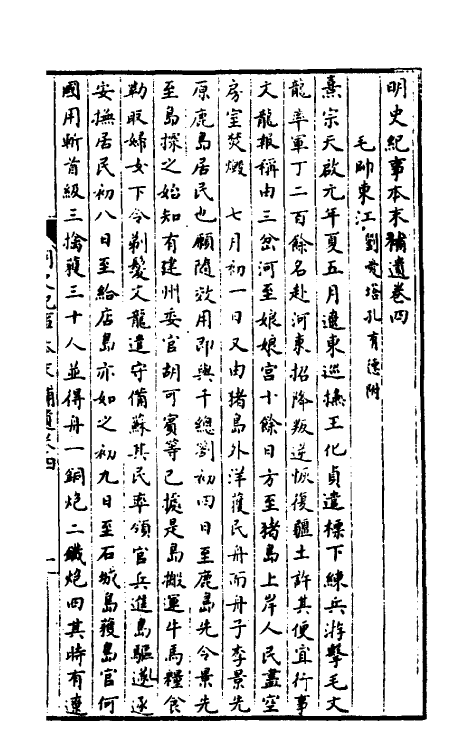 明史紀事本末補遺卷四
毛帥東江 劉愛塔孔有德附
熹宗天啟元年夏五月遼東巡撫王化貞遣標下練兵游擊毛文
龍率軍丁二百餘名赴河東招降叛逆恢復疆土許其便宜行事
文龍報稱由三岔河至娘娘宮十餘日方至猪島上岸人民盡空
房室焚燬 七月初一日又由猪島外洋獲民舟而舟子李景先
原鹿島居民也願隨效用即與千總劉初四日至鹿島先令景先
至島探之始知有建州委官胡可賓等已據是島搬運牛馬糧食
勒取婦女下令剃髮文龍遣守備蘇其民率領官兵進島驅逐
安撫居民初八日至給店島亦如之初九日至石城島獲島官何
國用斬首級三擒獲三十人並得舟一銅炮二鐵炮四其時有遼